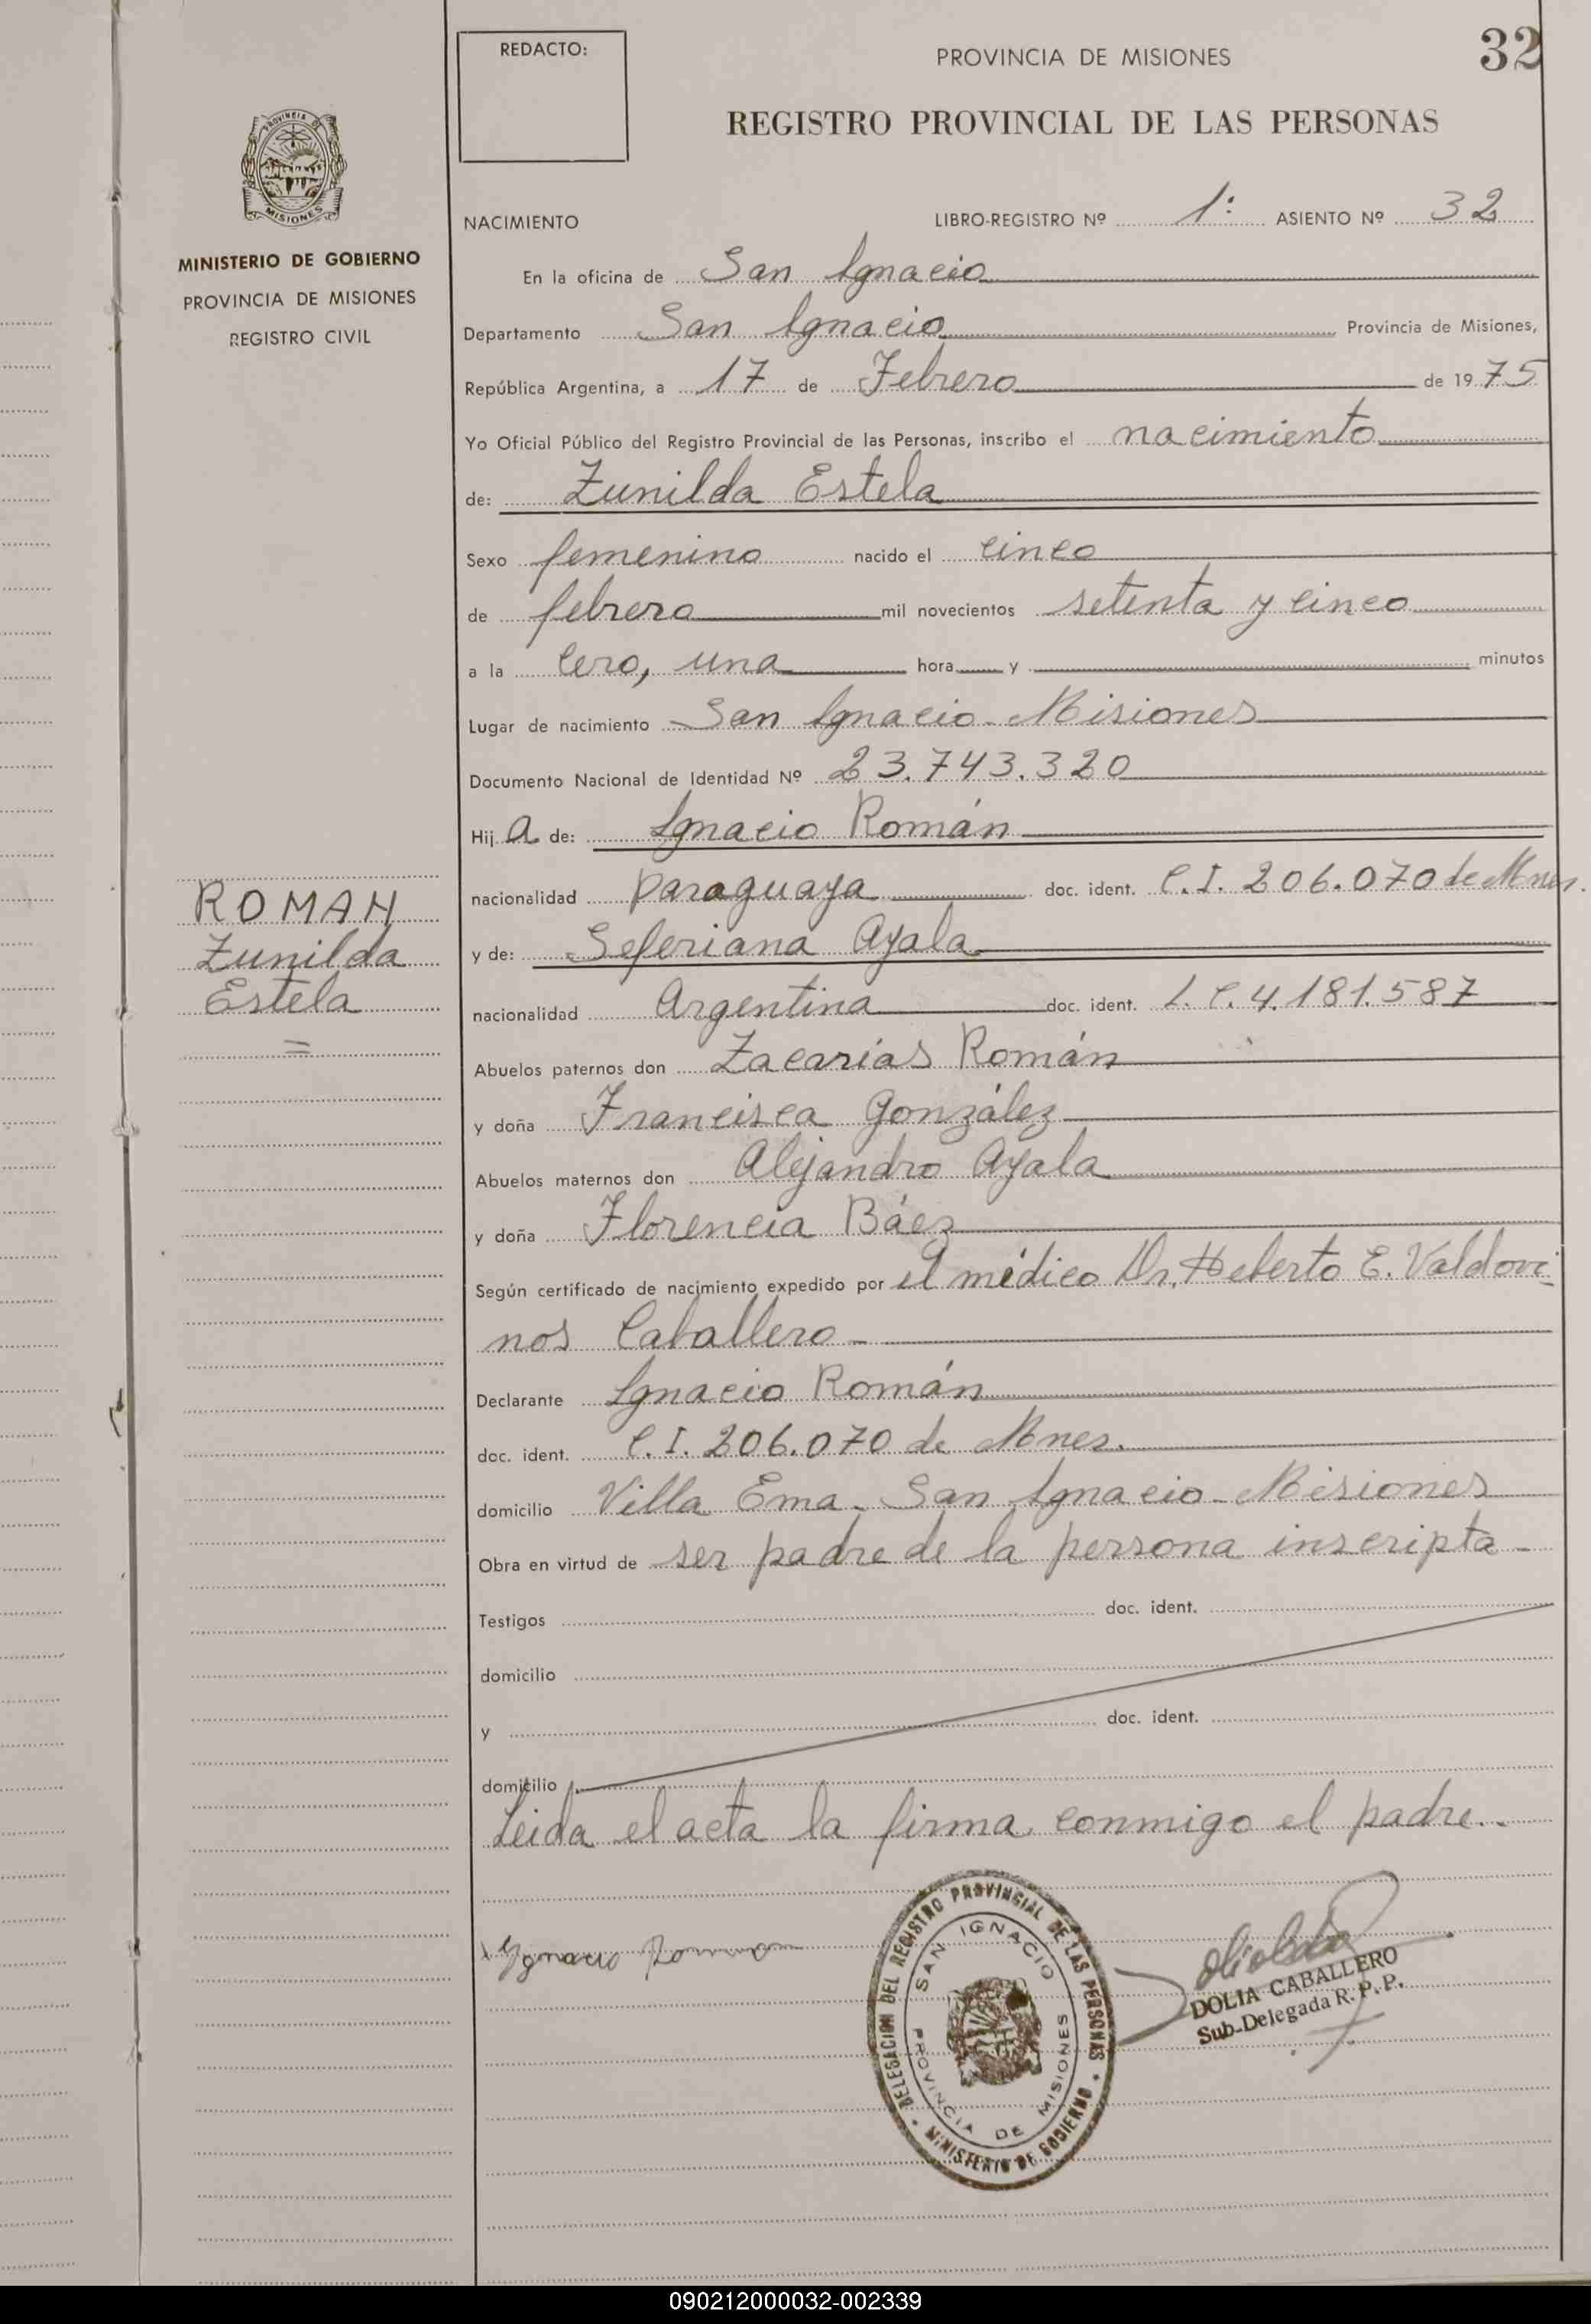 REDACTO:
PROVINCIA DE MISIONES
32
REGISTRO PROVINCIAL DE LAS PERSONAS
PROVINCIA DE
MISIONES
MINISTERIO DE GOBIERNO
PROVINCIA DE MISIONES
REGISTRO CIVIL
NACIMIENTO LIBRO-REGISTRO Nº 1: ASIENTO Nº 32
En la oficina de San Ignacio
Departamento San Ignacio Provincia de Misiones,
República Argentina, a 17 de Febrero de 1975
Yo Oficial Público del Registro Provincial de las Personas, inscribo el nacimiento
de: Zunilda Estela
Sexo femenino nacido el cinco
de febrero mil novecientos setenta y cinco
a la cero, una hora y minutos
Lugar de nacimiento San Ignacio - Misiones
Documento Nacional de Identidad Nº 23.743.320
Hija de: Ignacio Román
nacionalidad paraguaya doc. ident. C.I. 206.070 de Mnes.
y de: Seferiana Ayala
nacionalidad Argentina doc. ident. L.C. 4.181.587
Abuelos paternos don Zacarías Román
y doña Francisca González
Abuelos maternos don Alejandro Ayala
y doña Florencia Báez
Según certificado de nacimiento expedido por el médico Dr. Heberto E. Valdovi-
nos Caballero -
Declarante Ignacio Román
doc. ident. C.I. 206.070 de Mnes.
domicilio Villa Ema - San Ignacio - Misiones
Obra en virtud de ser padre de la persona inscripta -
Testigos doc. ident.
domicilio
y doc. ident.
domicilio
Leida el acta la firma conmigo el padre.-
ROMAN
Zunilda
Estela
=
Ygnacio Romman
DELEGACION DEL REGISTRO PROVINCIAL DE LAS PERSONAS
SAN IGNACIO
PROVINCIA DE MISIONES
MINISTERIO DE GOBIERNO
DOLIA CABALLERO
Sub-Delegada R. P. P.
090212000032-002339